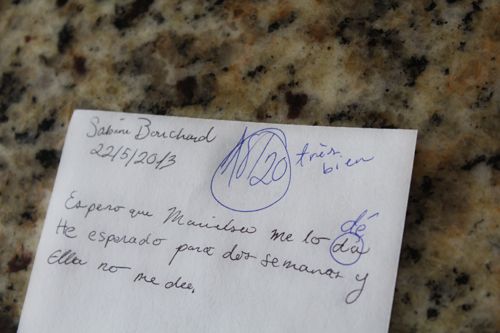 Sabine Bouchard
22/5/2013
18/20 très
bien
dé
Espero que me lo dá
He esperado para dos semanas y
Ella no me